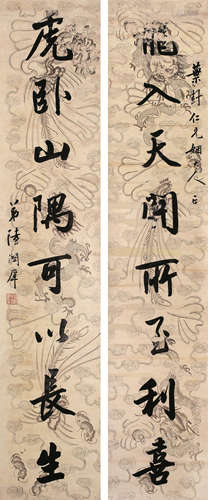 葉舟仁兄姻大人正
龍入天門所至利喜
虎卧山隅可以長生
弟陸潤庠